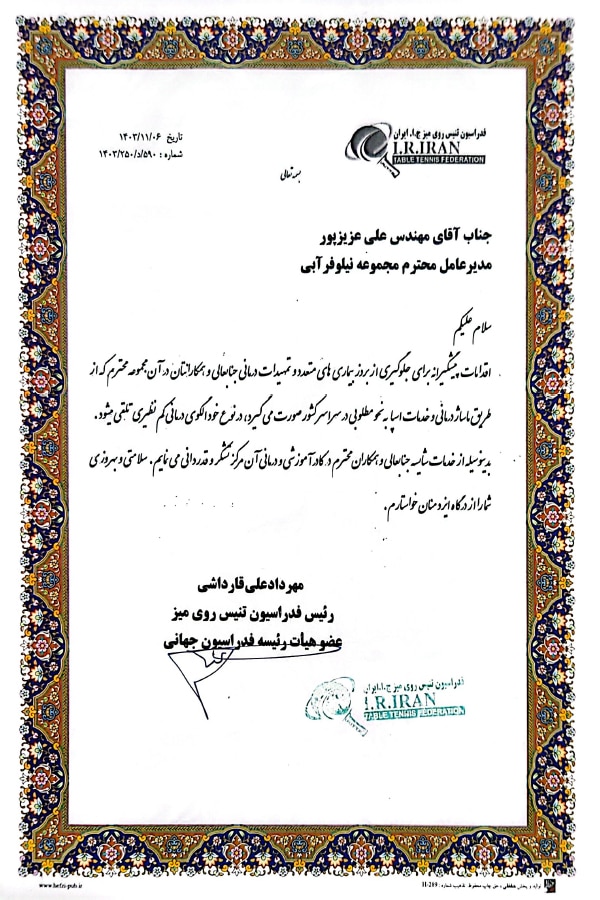 فدراسیون تنیس روی میز ج.ا. ایران
I.R.IRAN
TABLE TENNIS FEDERATION
تاریخ ۱۴۰۳/۱۱/۰۶
شماره : ۵۹۰/د/۱۴۰۳/۲۵۰
بسمه تعالی
جناب آقای مهندس علی عزیزپور
مدیرعامل محترم مجموعه نیلوفر آبی
سلام علیکم
اقدامات پیشگیرانه برای جلوگیری از بروز بیماری های متعدد و تمهیدات درمانی جنابعالی و همکارانتان در آن مجموعه محترم که از
طریق ماساژ درمانی و خدمات اسپا به نحو مطلوبی در سراسر کشور صورت می گیرد، در نوع خود الگوی درمانی کم نظیری تلقی میشود.
بدینوسیله از خدمات شایسه جنابعالی و همکاران محترم در کادر آموزشی و درمانی آن مرکز تشکر و قدردانی می نمایم. سلامتی و بهروزی
شما را از درگاه ایزد منان خواستارم.
مهرداد علی قارداشی
رئیس فدراسیون تنیس روی میز
عضو هیأت رئیسه فدراسیون جهانی
فدراسیون تنیس روی میز ج.ا.ایران
I.R.IRAN
TABLE TENNIS FEDERATION
www.hefzi-pub.ir
تولید و پخش حفظی ، حق چاپ محفوظ تذهیب شماره : H-289